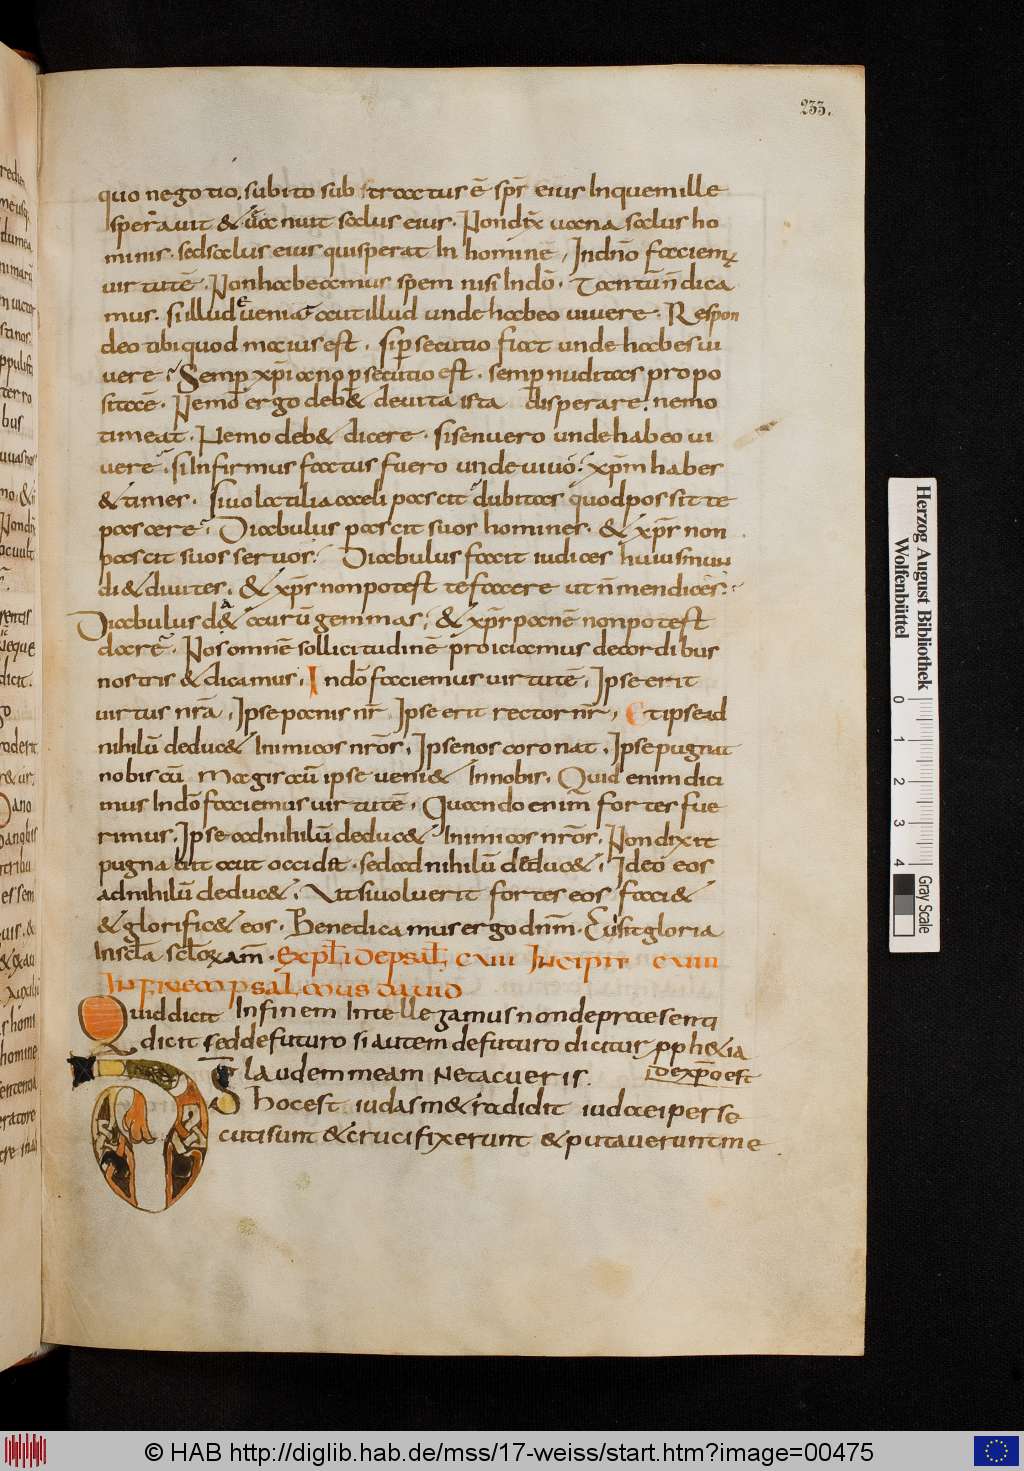 233.
quo negotio. subito subtractus ē sp̄s eius In quem ille
sperauit & uacuit salus eius. Non dix̄ uana salus ho
minis. sed salus eius qui sperat In homine, In dn̄o faciem;
uirtutē. Non habeamus spem nisi In dō. Tantū n̄ dica
mus. si illud uenia aut illud unde habeo uiuere. Respon
deo tibi quod maius est. si p̄secutio fiat unde habes ui
uere; Semp xp̄iano p̄secutio est. semp nuditas propo
sita ē. Nemo ergo deb& de uita ista disperare. nemo
timeat. Nemo deb& dicere. si senuero unde habeo ui
uere. si Infirmus factus fuero unde uiuo. xp̄m habes
& times. si uolatilia caeli pascit dubitas quod possit te
pascere; Diabulus pascit suos homines. & xp̄s non
pascit suos seruos. Diabulus facit iudices huius mun
di & diuites. & xp̄s non potest te facere ut n̄ mendices.
Diabulus d& aurū gemmas; & xp̄s panē non potest
dare. Nos omnē sollicitudinē proiciamus de cordibus
nostris & dicamus. In dō faciemus uirtutē. Ipse erit
uirtus nr̄a. Ipse panis nr̄. Ipse erit rector nr̄. Et ipse ad
nihilū deduc& Inimicos nr̄os. Ipse nos coronat. Ipse pugnat
nobiscū Magis cū ipse ueni& In nobis. Quid enim dici
mus In dō faciemus uirtutē. Quando enim fortes fue
rimus. Ipse ad nihilū deduc& Inimicos nr̄os. Non dixit
pugnabit aut occidit. sed ad nihilū deduc&. Ideo eos
ad nihilū deduc&. Ut si uoluerit fortes eos faci&
& glorific& eos. Benedicamus ergo dn̄m. Cui sit gloria
In scl̄a scl̄orum am̄. Expl̄ de psal̄ cuiii Incipit cuiiii
In finem psalmus dauid
Quid dicit In finem Intellegamus non de praesenti
dicit sed de futuro si autem de futuro dicitur pphetia
Ds laudem meam ne tacueris. de xpo est
hoc est iudas me tradidit iudaei perse
cuti sunt & crucifixerunt & putauerunt me
Herzog August Bibliothek
Wolfenbüttel
0 1 2 3 4 Gray Scale
© HAB http://diglib.hab.de/mss/17-weiss/start.htm?image=00475